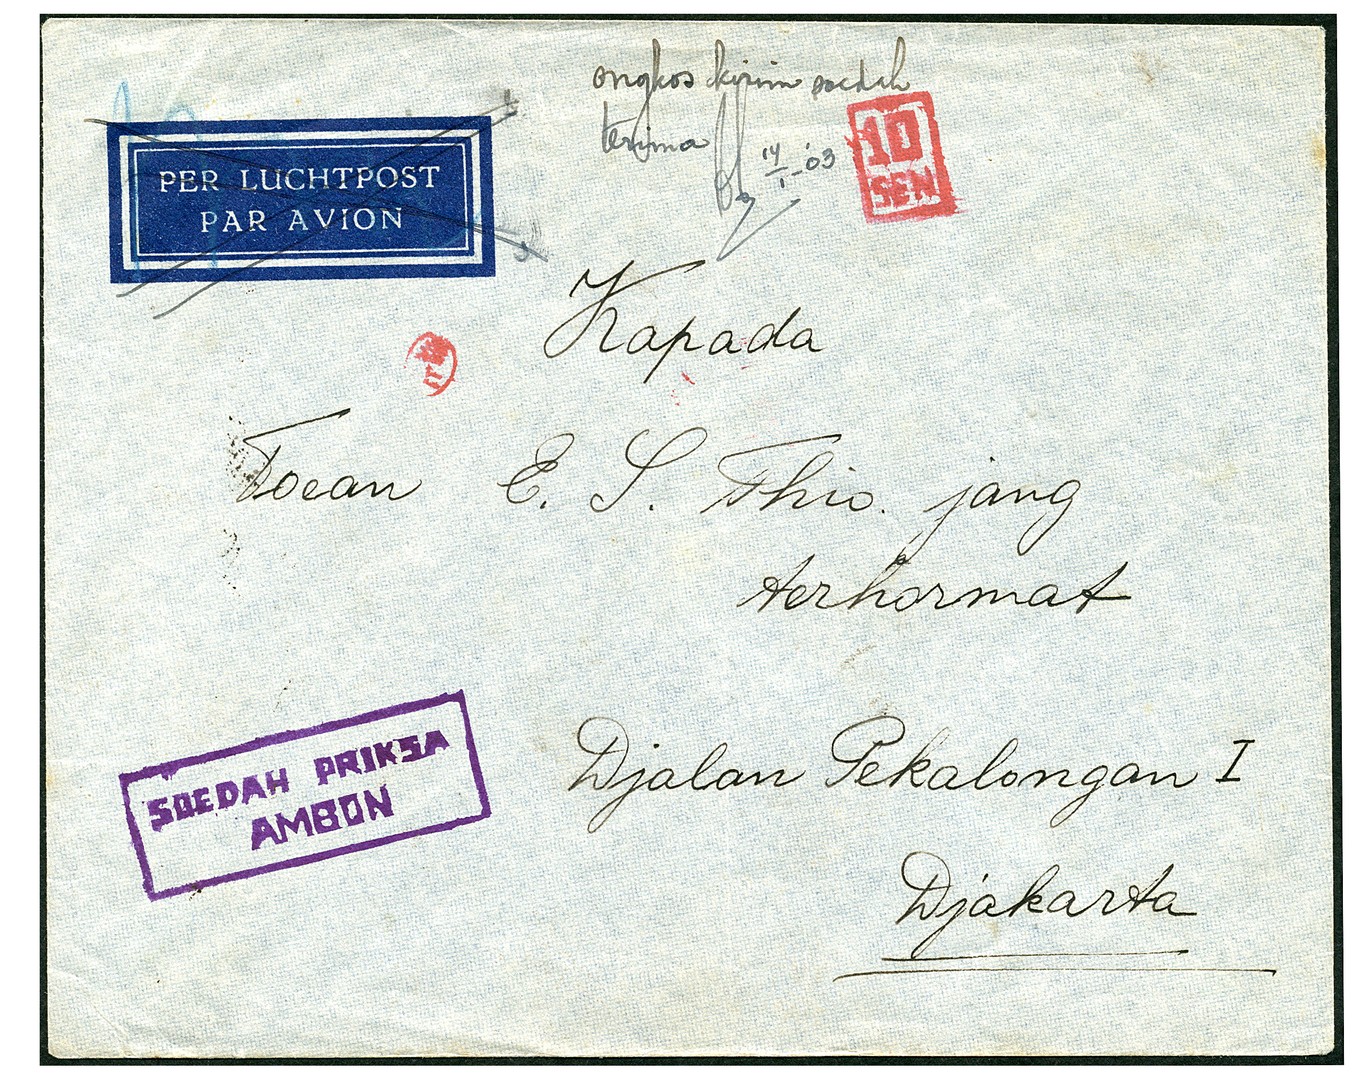 ongkos kirim soedah
terima
14/1-'03
10
SEN
PER LUCHTPOST
PAR AVION
Kapada
Toean E. S. Thio. jang
terhormat
SOEDAH PRIKSA
AMBON
Djalan Pekalongan I
Djakarta